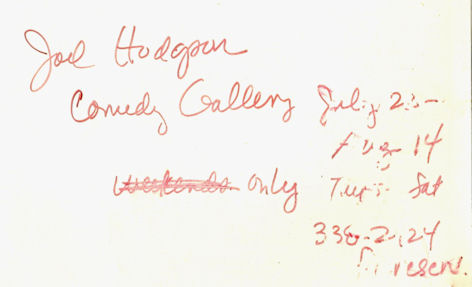 Joel Hodgson
Comedy Gallery July 23-
Aug 14
weekends only Tues- Sat
338-2124
for reserv.